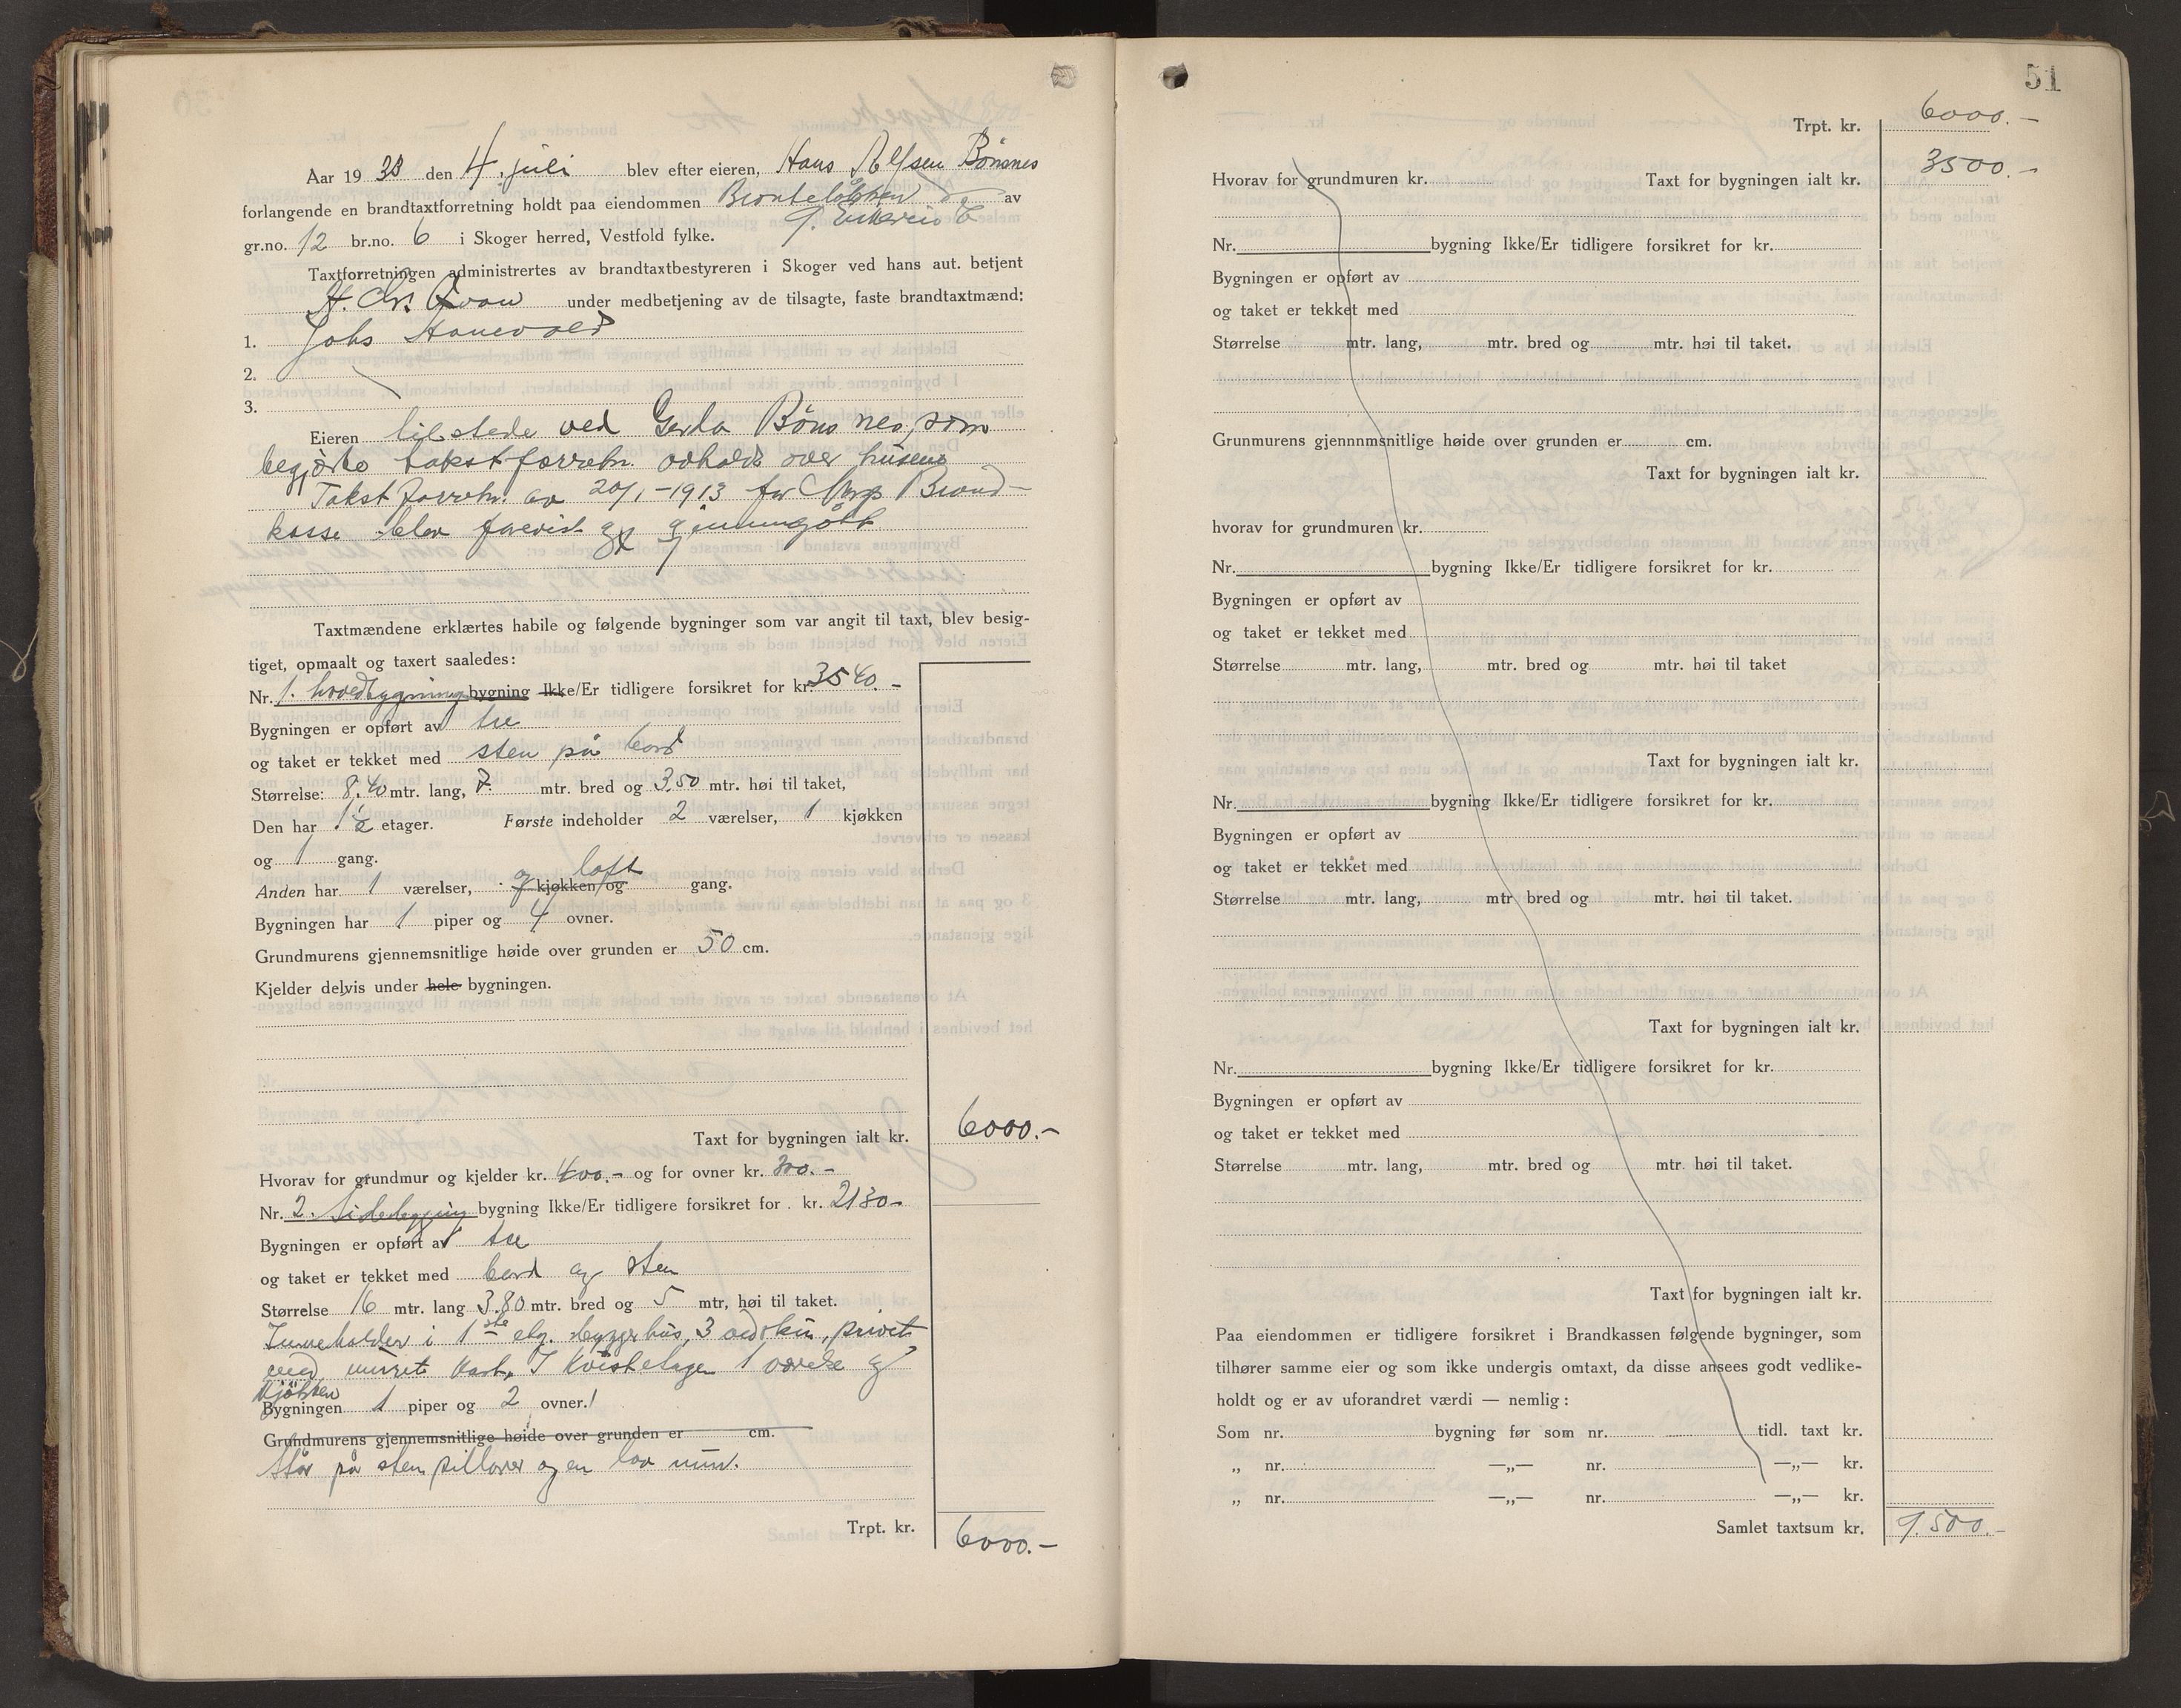 Aar 19 33 den 4. juli blev efter eieren, Hans Alfsen Bönsnes
forlangende en brandtaxtforretning holdt paa eiendommen av
gr.no. 12 br.no. 6 i Skoger herred, Vestfold fylke.
Taxtforretningen administrertes av brandtaxtbestyreren i Skoger ved hans aut. betjent
H. Chr. under medbetjening av de tilsagte, faste brandtaxtmænd:
1. Johs Hanevold
2.
3.
Eieren tilstede ved Gerda Bönsnes, som
begjærte takstforretn. avholdt over husene
Takstforretn. av 20/1-1913 for Norges Brand-
kasse blev forevist og gjennemgått
Taxtmændene erklærtes habile og følgende bygninger som var angit til taxt, blev besig-
tiget, opmaalt og taxert saaledes:
Nr. 1. hovedbygning bygning Ikke/Er tidligere forsikret for kr. 3540.-
Bygningen er opført av tre
og taket er tekket med sten på bord
Størrelse: 8,40 mtr. lang, 7. mtr. bred og 3,50 mtr. høi til taket,
Den har 1½ etager. Første indeholder 2 værelser, 1 kjøkken
og 1 gang.
og loft
Anden har 1 værelser, kjøkken og gang.
Bygningen har 1 piper og 4 ovner.
Grundmurens gjennemsnitlige høide over grunden er 50 cm.
Kjelder delvis under hele bygningen.
Taxt for bygningen ialt kr. 6000.-
Hvorav for grundmur og kjelder kr. 400.- og for ovner kr. 300.-
Nr. 2. Sidebygning bygning Ikke/Er tidligere forsikret for . kr. 2130-
Bygningen er opført av tre
og taket er tekket med bord og sten
Størrelse 16 mtr. lang 3.80 mtr. bred og 5 mtr, høi til taket.
Inneholder i 1ste etg. bryggerhus, 3 vedskur, privet
med muret kast. I kvistetagen 1 værelse og
kjökken
Bygningen 1 piper og 2 ovner.
Grundmurens gjennemsnitlige høide over grunden er cm.
Står på stenpillarer og en lav mur.
Trpt. kr. 6000.-
51
Trpt. kr. 6000.-
Hvorav for grundmuren kr. Taxt for bygningen ialt kr. 3500.-
Nr. bygning Ikke/Er tidligere forsikret for kr.
Bygningen er opført av
og taket er tekket med
Størrelse mtr. lang, mtr. bred og mtr. høi til taket.
Grunmurens gjennnmsnitlige høide over grunden er cm.
Taxt for bygningen ialt kr.
hvorav for grundmuren kr.
Nr. bygning Ikke/Er tidligere forsikret for kr.
Bygningen er opført av
og taket er tekket med
Størrelse mtr. lang, mtr. bred og mtr. høi til taket
Taxt for bygningen ialt kr.
Nr. bygning Ikke/Er tidligere forsikret for kr.
Bygningen er opført av
og taket er tekket med
Størrelse mtr. lang, mtr bred og mtr. høi til taket.
Taxt for bygningen ialt kr.
Nr. bygning Ikke/Er tidligere forsikret for kr.
Bygningen er opført av
og taket er tekket med
Størrelse mtr. lang, mtr. bred og mtr. høi til taket.
Taxt for bygningen ialt kr.
Paa eiendommen er tidligere forsikret i Brandkassen følgende bygninger, som
tilhører samme eier og som ikke undergis omtaxt, da disse ansees godt vedlike-
holdt og er av uforandret værdi — nemlig:
Som nr. bygning før som nr. tidl. taxt kr.
„ nr. —„— nr. —„— kr.
„ nr. —„— nr. —„— kr.
Samlet taxtsum kr. 9.500.-